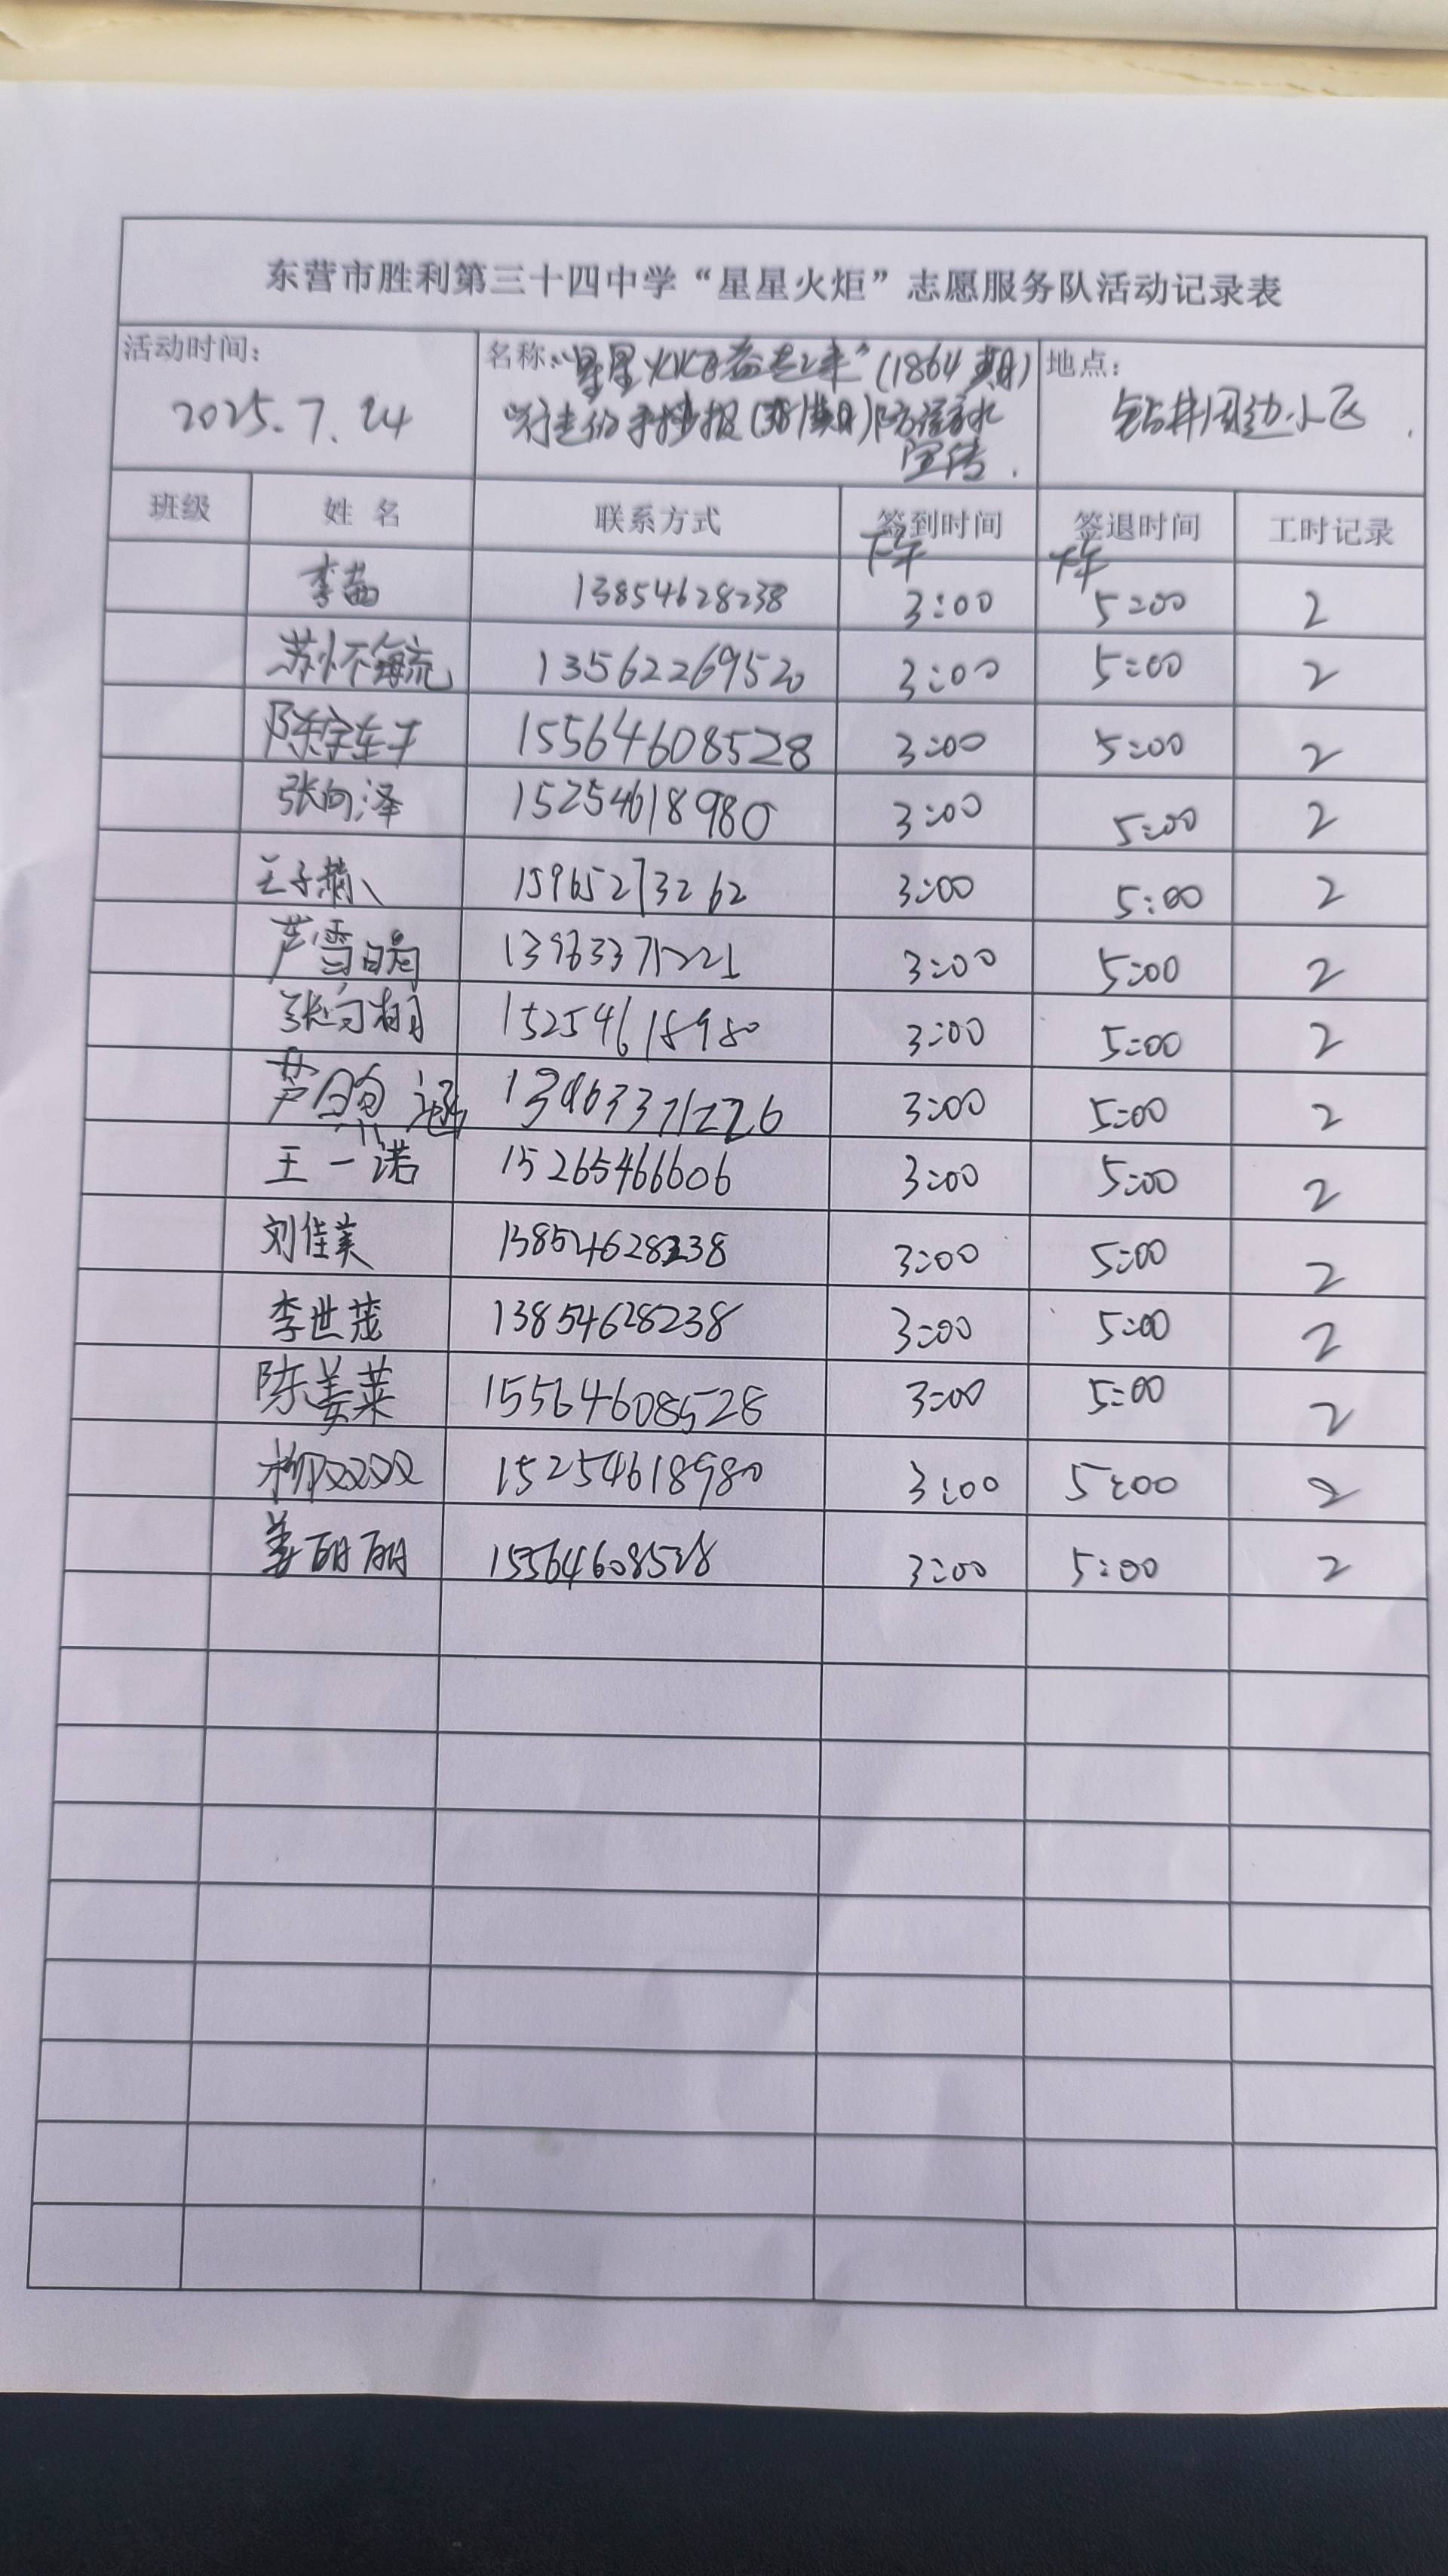 东营市胜利第三十四中学“星星火炬”志愿服务队活动记录表
活动时间： 名称： “星星火炬 益起来”(1864期) 地点：
2025.7.24 手抄报 防溺水 钻井周边小区
宣传.
班级 姓名 联系方式 签到时间 签退时间 工时记录
下午 下午
李茜 13854628238 3:00 5:00 2
苏怀毓 13562269520 3:00 5:00 2
陈宇 15564608528 3:00 5:00 2
张向泽 15254618980 3:00 5:00 2
王子 15965273262 3:00 5:00 2
芦雪 13963371221 3:00 5:00 2
张向桐 15254618980 3:00 5:00 2
芦煦涵 13963371226 3:00 5:00 2
王一诺 15265466606 3:00 5:00 2
刘佳美 13854628238 3:00 5:00 2
李世茂 13854628238 3:00 5:00 2
陈姜莱 15564608528 3:00 5:00 2
柳双双 15254618980 3:00 5:00 2
姜丽丽 15564608528 3:00 5:00 2